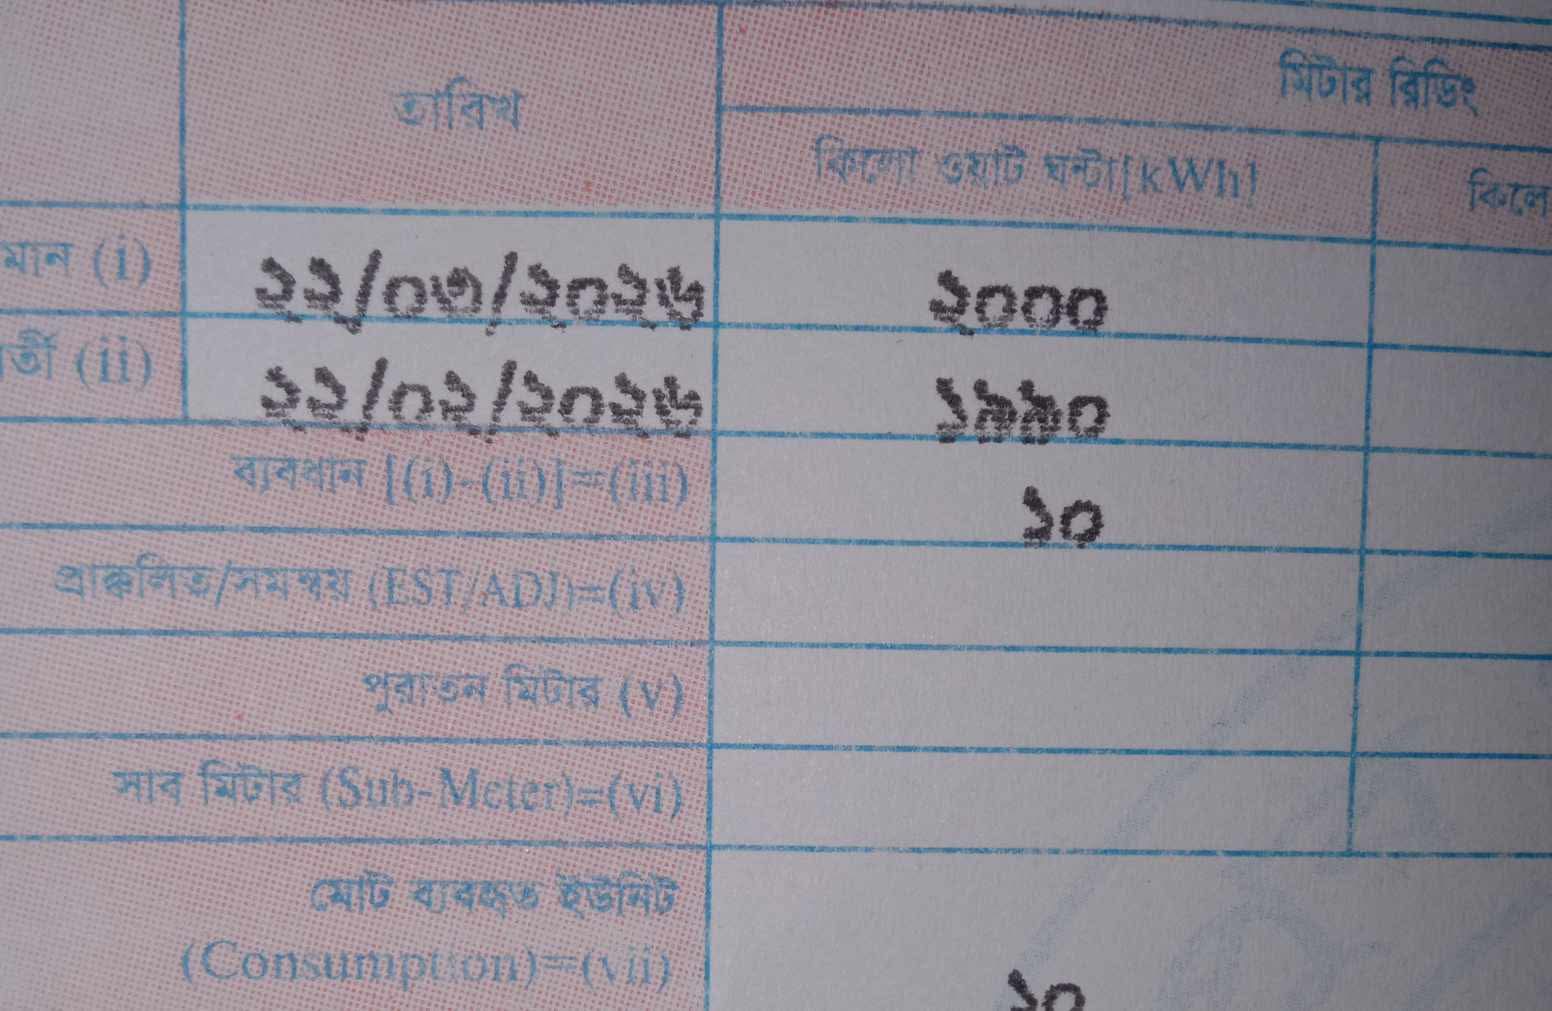 তারিখ
মিটার রিডিং
কিলো ওয়াট ঘন্টা[kWh]
কিলো
মান (i)
২২/০৩/২০২৬
২০০০
র্তী (ii)
২২/০২/২০২৬
১৯৯০
ব্যবধান [(i)-(ii)]=(iii)
১০
প্রাক্কলিত/সমন্বয় (EST/ADJ)=(iv)
পুরাতন মিটার (v)
সাব মিটার (Sub-Meter)=(vi)
মোট ব্যবহৃত ইউনিট
(Consumption)=(vii)
১০